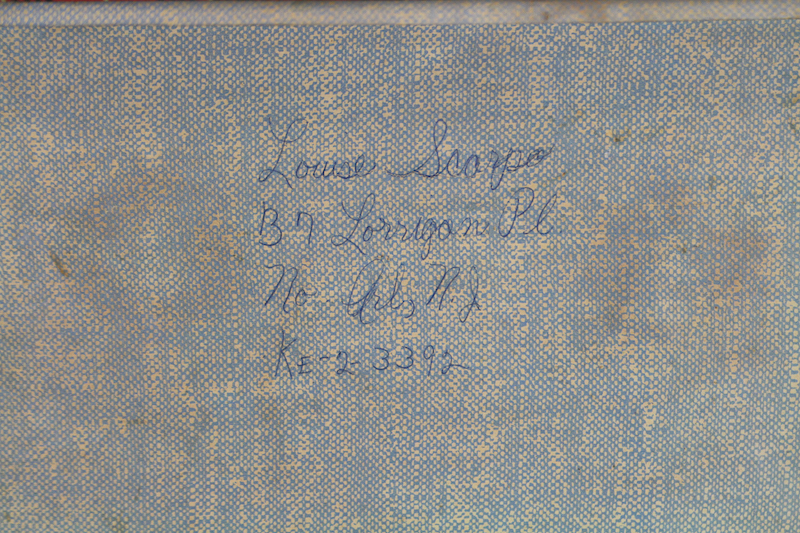 Louise Scarpo
B7 Lorrigan Pl
No Arl, N.J
KE-2-3392